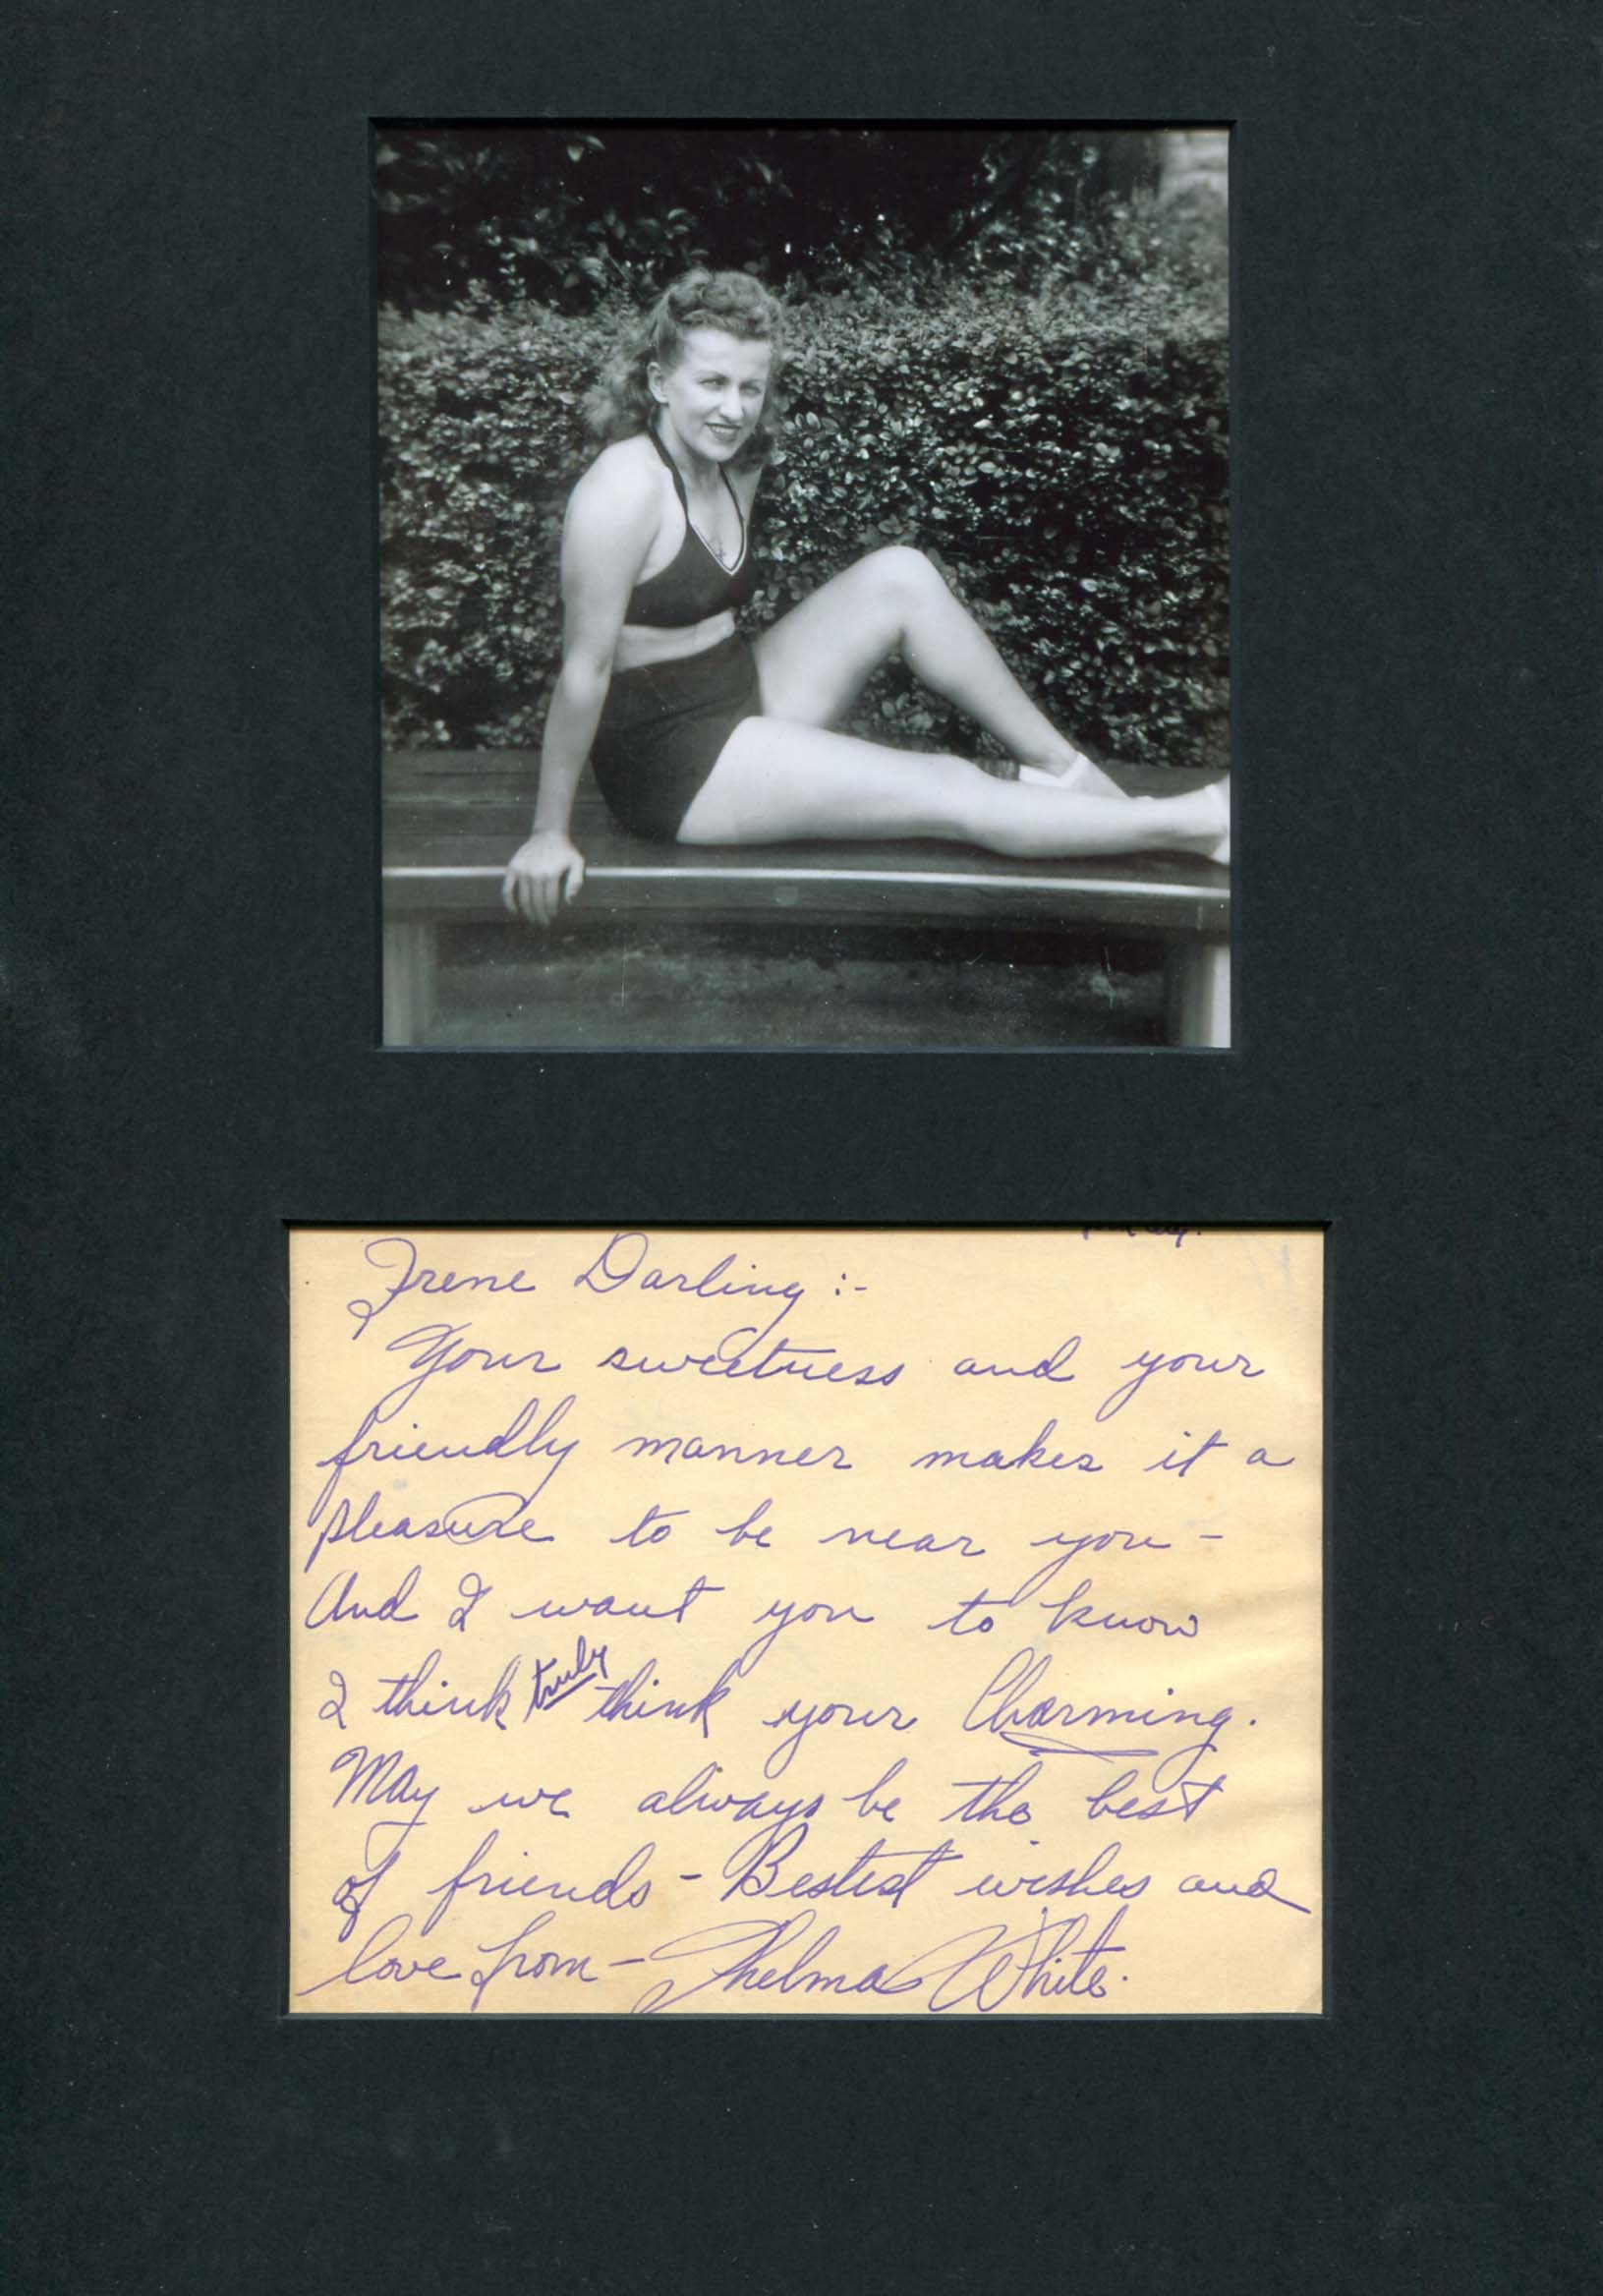 Irene Darling :-
Your sweetness and your
friendly manner makes it a
pleasure to be near you -
And I want you to know
I think truly think your Charming.
May we always be the best
of friends - Bestest wishes and
love from - Thelma White.